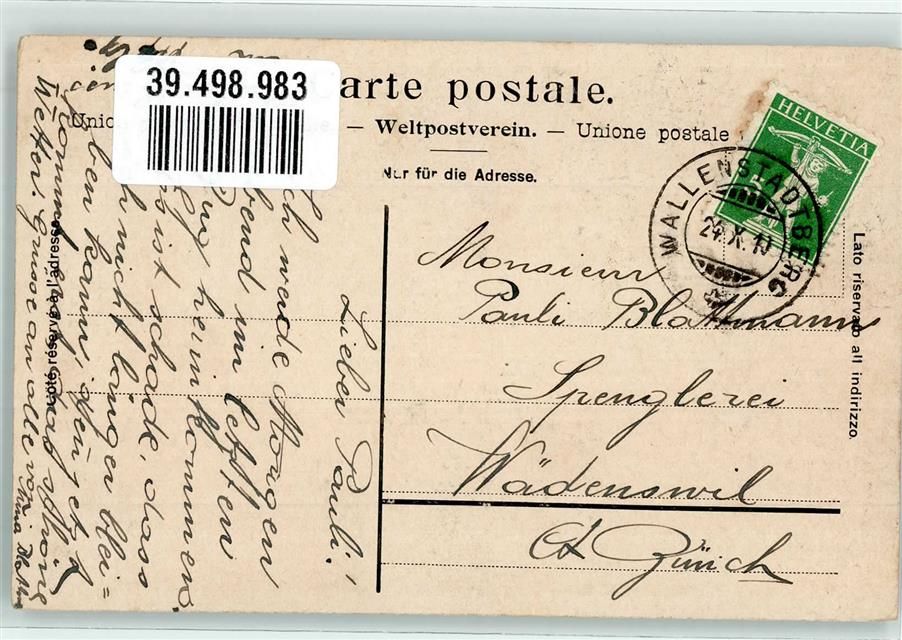 39.498.983
Carte postale.
Union
— Weltpostverein. — Unione postale
Nur für die Adresse.
HELVETIA
WALLENSTADTBERG
24.X.10
Côté réservé à l'adresse.
Lato riservato all indirizzo.
Monsieur
Pauli Blattmann
Spenglerei
Wädenswil
Ct Zürich
Lieber Pauli!
Ich werde Morgen
Abend im letzten
Zug heimkommen.
Es ist schade, dass
ich nicht länger blei=
ben kann, jetzt
kommt das schöne
Wetter. Grüsse an alle von